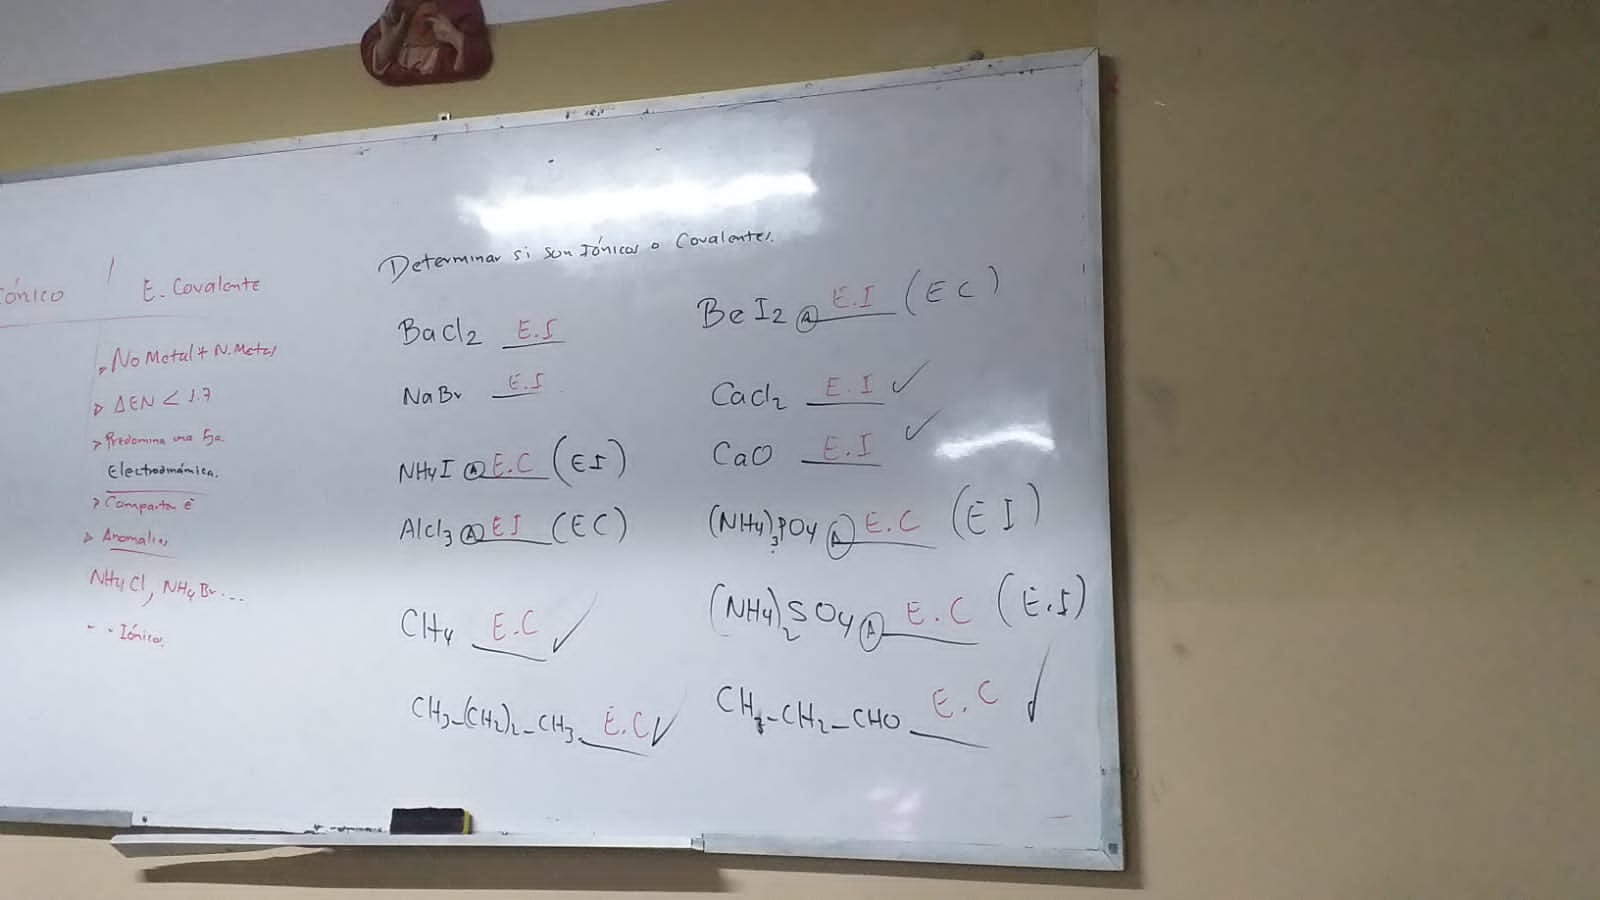 ónico / E. Covalente
> No Metal + N. Metal
> ΔEN < 1.7
> Predomina una Fza.
Electrodinámica.
> Comparten e⁻
> Anomalías
NH4Cl, NH4Br...
- - Iónicos
Determinar si son Iónicos o Covalentes.
BaCl2 E.I
NaBr E.I
NH4I (A) E.C (EI)
AlCl3 (A) EI (EC)
CH4 E.C ✓
CH3-(CH2)2-CH3 E.C ✓
BeI2 (A) E.I (EC)
CaCl2 E.I ✓
CaO E.I ✓
(NH4)3PO4 (A) E.C (EI)
(NH4)2SO4 (A) E.C (E.I)
CH3-CH2-CHO E.C ✓